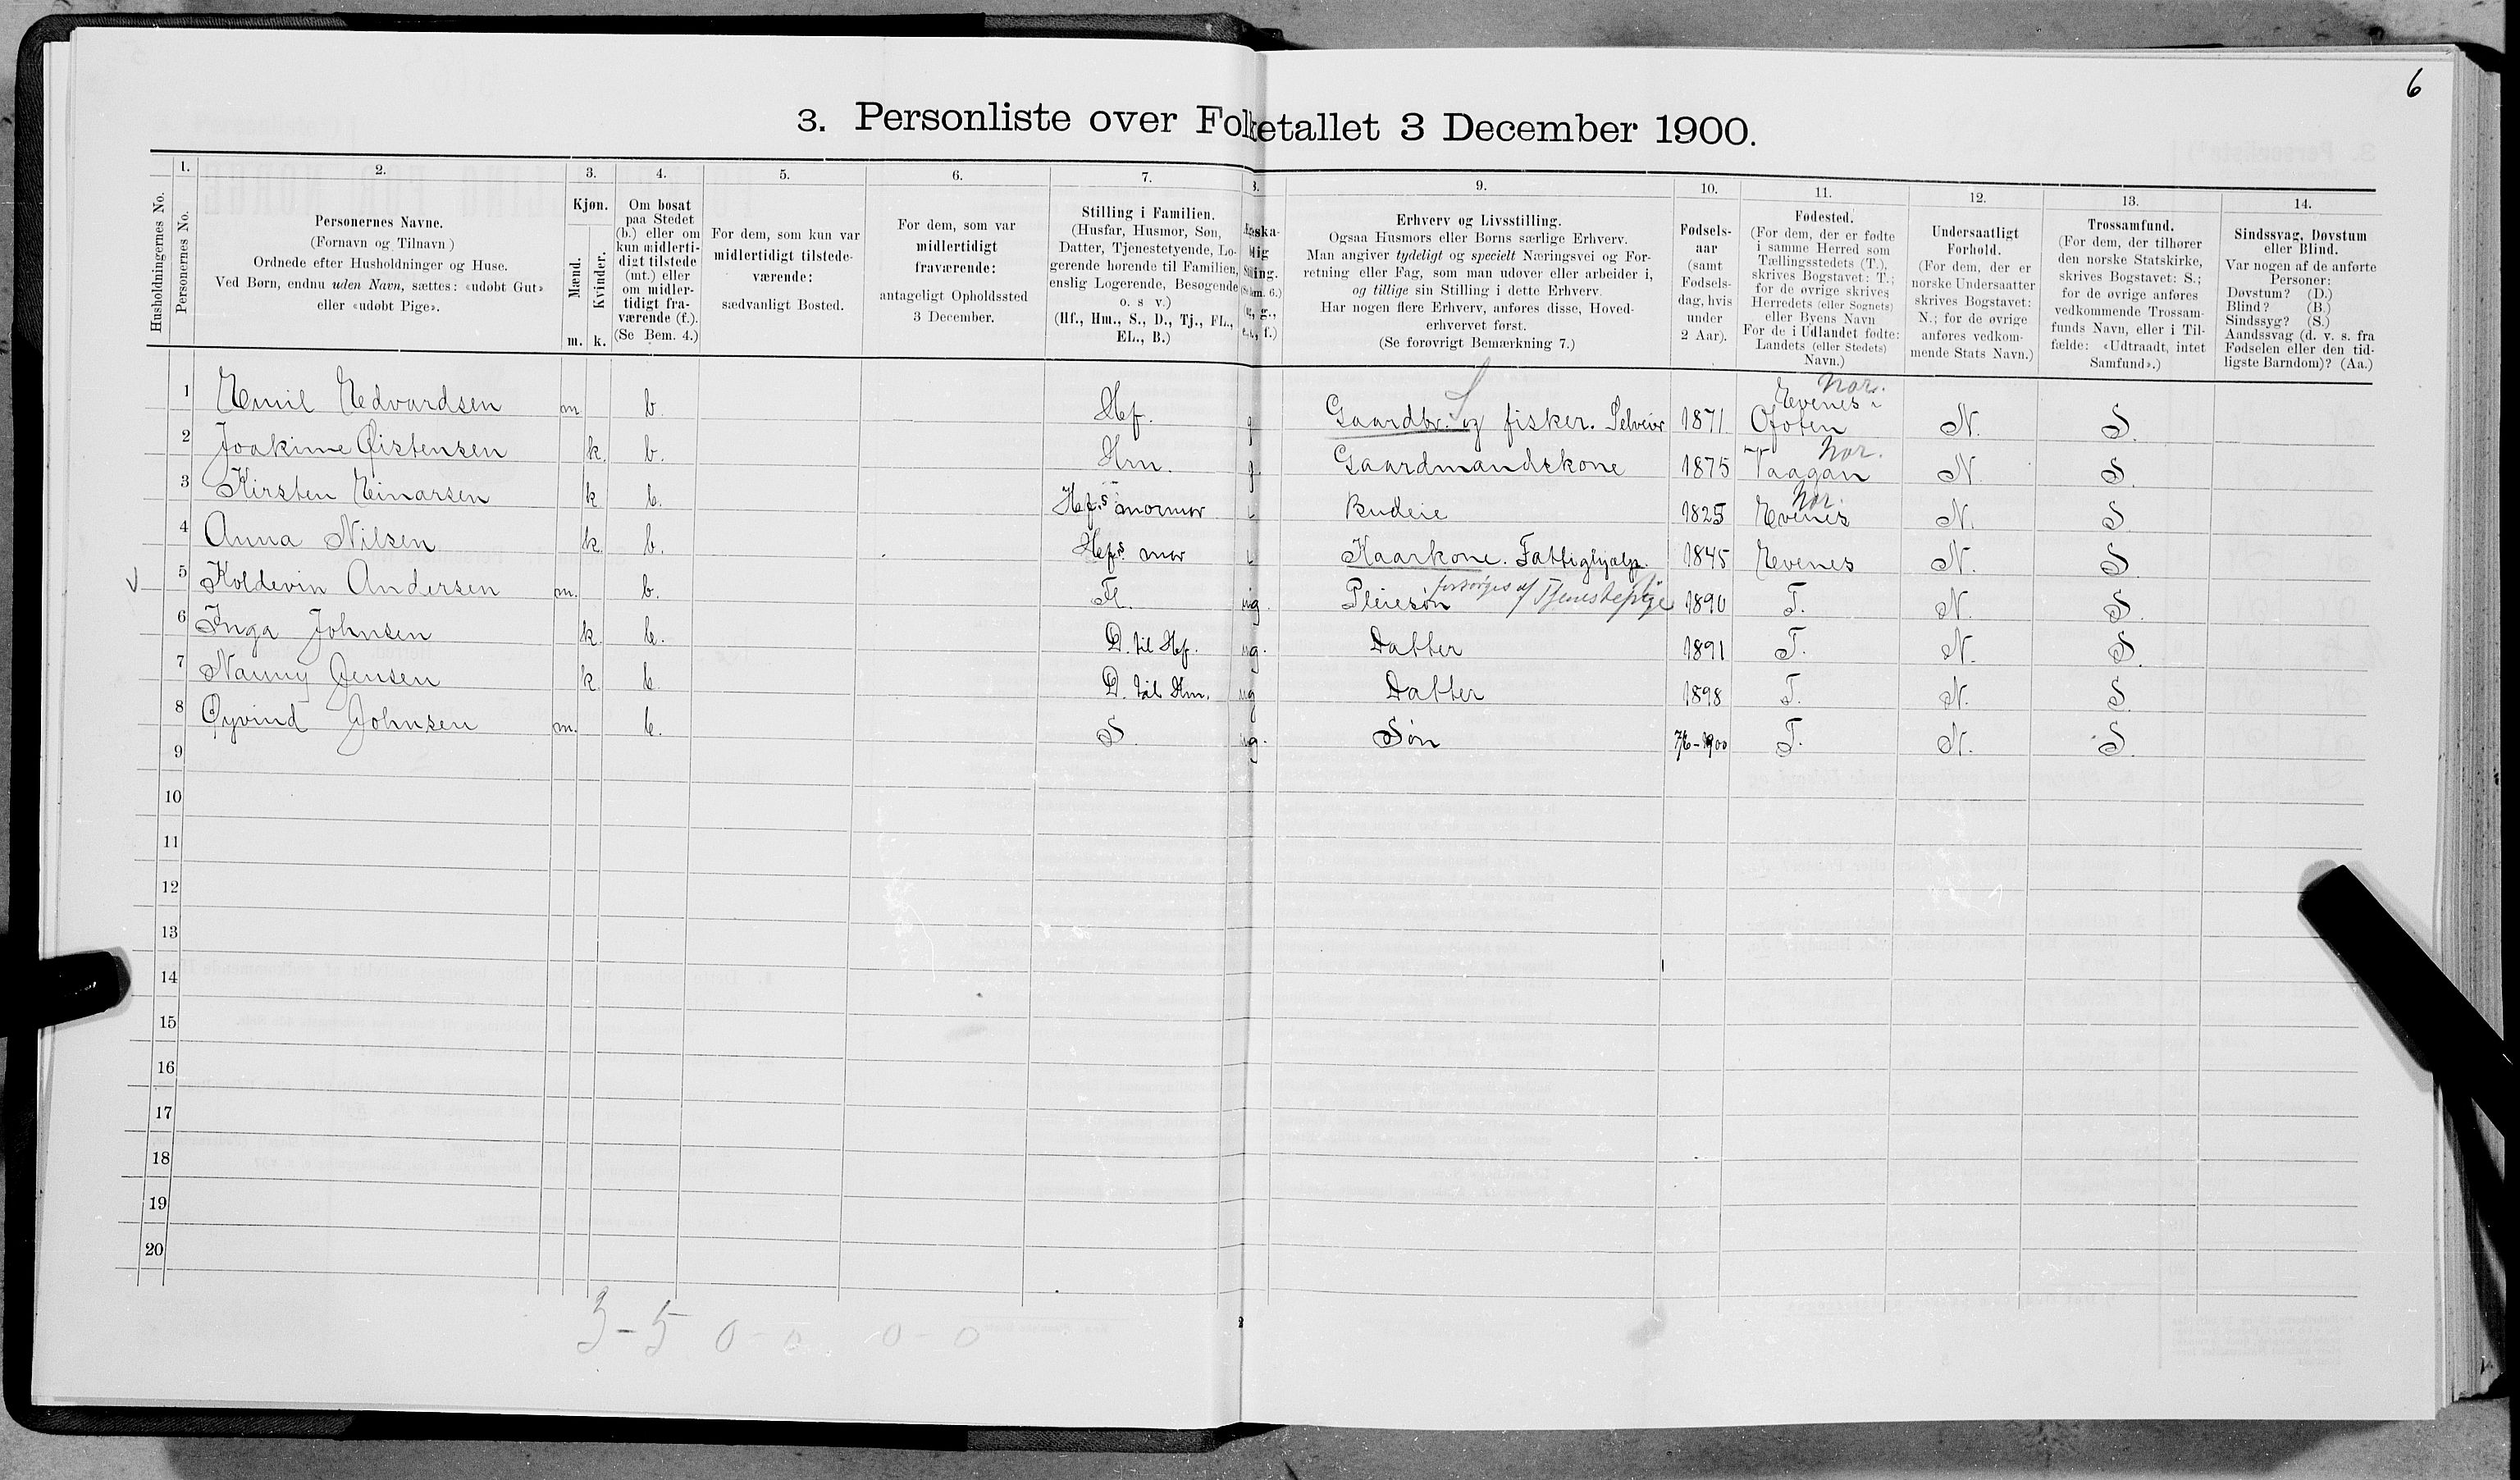 6
3. Personliste over Folketallet 3 December 1900.
Husholdningernes No.
1.
Personernes No.
2.
Personernes Navne.
(Fornavn og Tilnavn)
Ordnede efter Husholdninger og Huse.
Ved Børn, endnu uden Navn, sættes: «udøbt Gut»
eller «udøbt Pige».
3.
Kjøn.
Mænd.
Kvinder.
m. k.
4.
Om bosat
paa Stedet
(b.) eller om
kun midlerti-
digt tilstede
(mt.) eller
om midler-
tidigt fra-
værende (f.).
(Se Bem. 4.)
5.
For dem, som kun var
midlertidigt tilstede-
værende:
sædvanligt Bosted.
6.
For dem, som var
midlertidigt
fraværende:
antageligt Opholdssted
3 December.
7.
Stilling i Familien.
(Husfar, Husmor, Søn,
Datter, Tjenestetyende, Lo-
gerende hørende til Familien,
enslig Logerende, Besøgende
o. s v.)
(Hf., Hm., S., D., Tj., FL.,
EL., B.)
9.
Erhverv og Livsstilling.
Ogsaa Husmors eller Børns særlige Erhverv.
Man angiver tydeligt og specielt Næringsvei og For-
retning eller Fag, som man udøver eller arbeider i,
og tillige sin Stilling i dette Erhverv.
Har nogen flere Erhverv, anføres disse, Hoved-
erhvervet først.
(Se forøvrigt Bemærkning 7.)
10.
Fødsels-
aar
(samt
Fødsels-
dag, hvis
under
2 Aar).
11.
Fødested.
(For dem, der er fødte
i samme Herred som
Tællingsstedets (T.),
skrives Bogstavet: T.;
for de øvrige skrives
Herredets (eller Sognets)
eller Byens Navn
For de i Udlandet fødte:
Landets (eller Stedets)
Navn.)
12.
Undersaatligt
Forhold.
(For dem, der er
norske Undersaatter
skrives Bogstavet:
N.; for de øvrige
anføres vedkom-
mende Stats Navn.)
13.
Trossamfund.
(For dem, der tilhører
den norske Statskirke,
skrives Bogstavet: S.;
for de øvrige anføres
vedkommende Trossam-
funds Navn, eller i Til-
fælde: «Udtraadt, intet
Samfund».)
14.
Sindssvag, Døvstum
eller Blind.
Var nogen af de anførte
Personer:
Døvstum? (D.)
Blind? (B.)
Sindssyg? (S.)
Aandssvag (d. v. s. fra
Fødselen eller den tid-
ligste Barndom)? (Aa.)
1 Emil Edvardsen m b. Hf. g Gaardbr. og fisker. Selveier 1871 Evenes i Ofoten Nor. N. S.
2 Joakime Øistensen k. b. Hm. g Gaardmandskone 1875 Vaagan Nor. N. S.
3 Kirsten Einarsen k b. Hf.s mormor Budeie 1825 Evenes Nor. N. S
4 Anna Nilsen k. b. Hf.s mor Kaarkone. Fattighjælp. 1845 Evenes N. S.
5 Koldevin Andersen m. b. Fl. ug. Pleiesøn forsørges af Tjenestepige 1890 T. N. S.
6 Inga Johnsen k. b. D. til Hf. ug. Datter 1891 T. N. S.
7 Nanny Jensen k. b. D. til Hm. ug Datter 1898 T. N. S.
8 Øyvind Johnsen m. b. S. ug. Søn 7/6-1900 T. N. S.
9
10
11
12
13
14
15
16
17
18
19
20
3-5 0-0 0-0